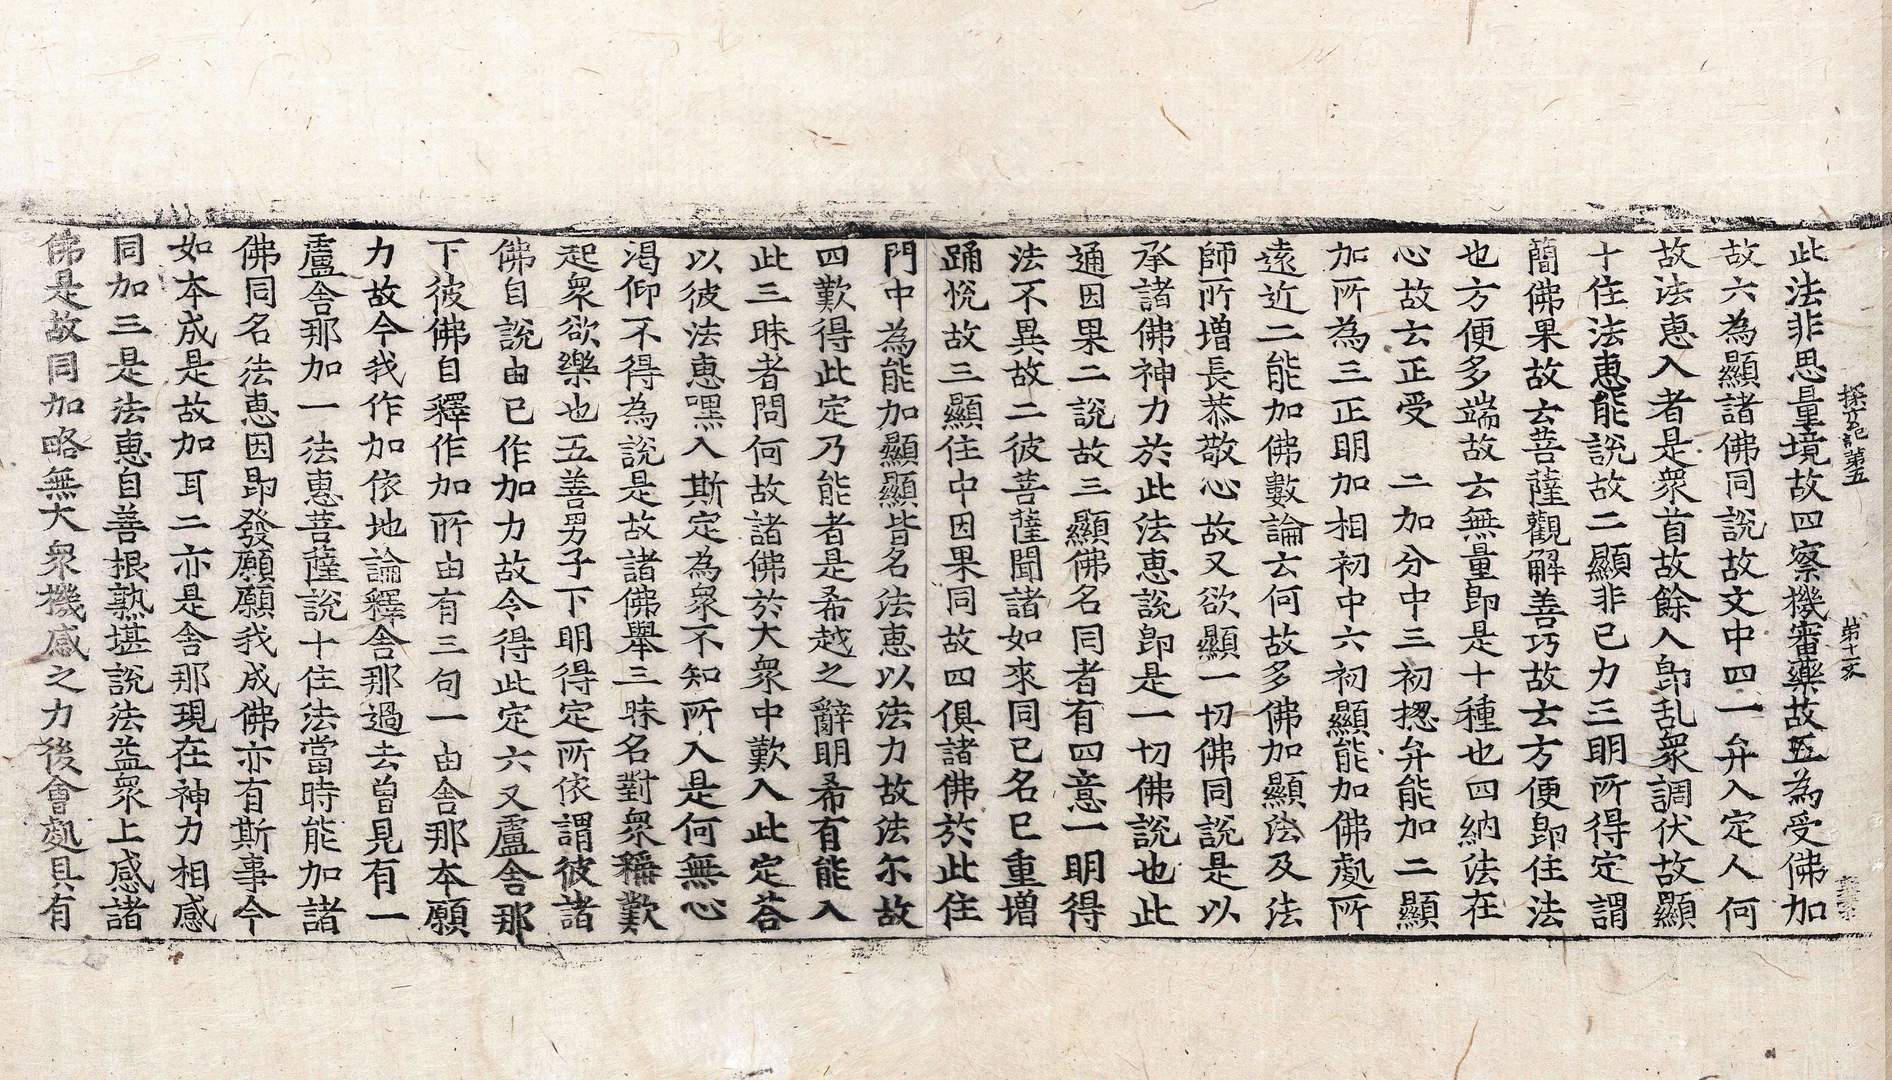 探玄記第五 第十二丈
此法非思量境故四察機審藥故五為受佛加
故六為顯諸佛同說故文中四一弁入定人何
故法惠入者是衆首故餘入即乱衆調伏故顯
十住法惠能說故二顯非己力三明所得定謂
簡佛果故去菩薩觀解善巧故去方便即住法
也方便多端故云無量即是十種也四納法在
心故云正受 二加分中三初揔弁能加二顯
加所為三正明加相初中六初顯能加佛處所
遠近二能加佛數論云何故多佛加顯法及法
師所增長恭敬心故又欲顯一切佛同說是以
承諸佛神力於此法惠說即是一切佛說也此
通因果二說故三顯佛名同者有四意一明得
法不異故二彼菩薩聞諸如來同己名已重增
踊悅故三顯住中因果同故四俱諸佛於此住
門中為能加顯顯皆名法惠以法力故法尔故
四歎得此定乃能者是希越之辭明希有能入
此三昧者問何故諸佛於大衆中歎入此定荅
以彼法惠嘿入斯定為衆不知所入是何無心
渴仰不得為說是故諸佛舉三昧名對衆稱歎
起衆欲樂也五善男子下明得定所依謂彼諸
佛自說由已作加力故令得此定六又盧舍那
下彼佛自釋作加所由有三句一由舍那本願
力故今我作加依地論釋舍那過去曾見有一
盧舍那加一法惠菩薩說十住法當時能加諸
佛同名法惠因即發願願我成佛亦有斯事今
如本成是故加耳二亦是舍那現在神力相感
同加三是法惠自善根熟堪說法益衆上感諸
佛是故同加略無大衆機感之力後會處具有